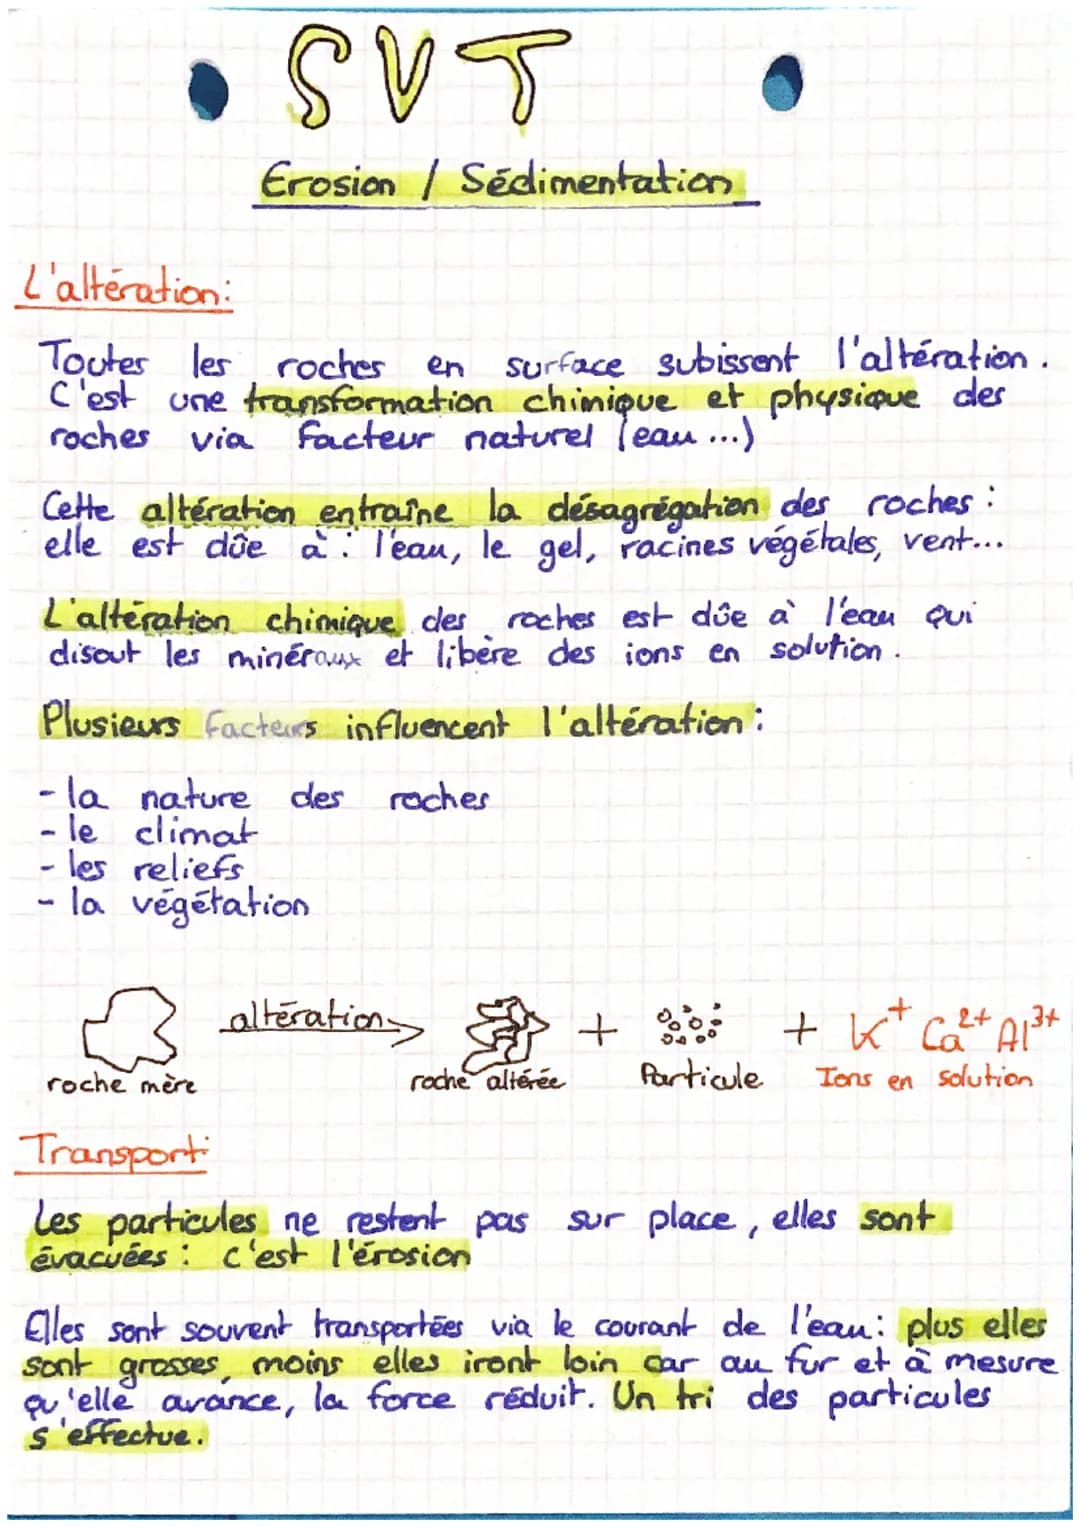 SVT
Erosion / Sédimentation
L'altération:
Toutes les roches en surface subissent l'altération.
C'est une transformation chimique et physique des
roches via facteur naturel (eau...)
Cette altération entraîne la désagrégation des roches :
elle est dûe à : l'eau, le gel, racines végétales, vent...
L'altération chimique des roches est dûe à l'eau qui
disout les minéraux et libère des ions en solution.
Plusieurs facteurs influencent l'altération :
- la nature des roches
- le climat
- les reliefs
- la végétation
altération
+ + K+ Ca2+ Al3+
roche mère roche altérée Particule Ions en solution
Transport:
Les particules ne restent pas sur place, elles sont
évacuées : c'est l'érosion
Elles sont souvent transportées via le courant de l'eau: plus elles
sont grosses, moins elles iront loin car au fur et à mesure
qu'elle avance, la force réduit. Un tri des particules
s'effectue.